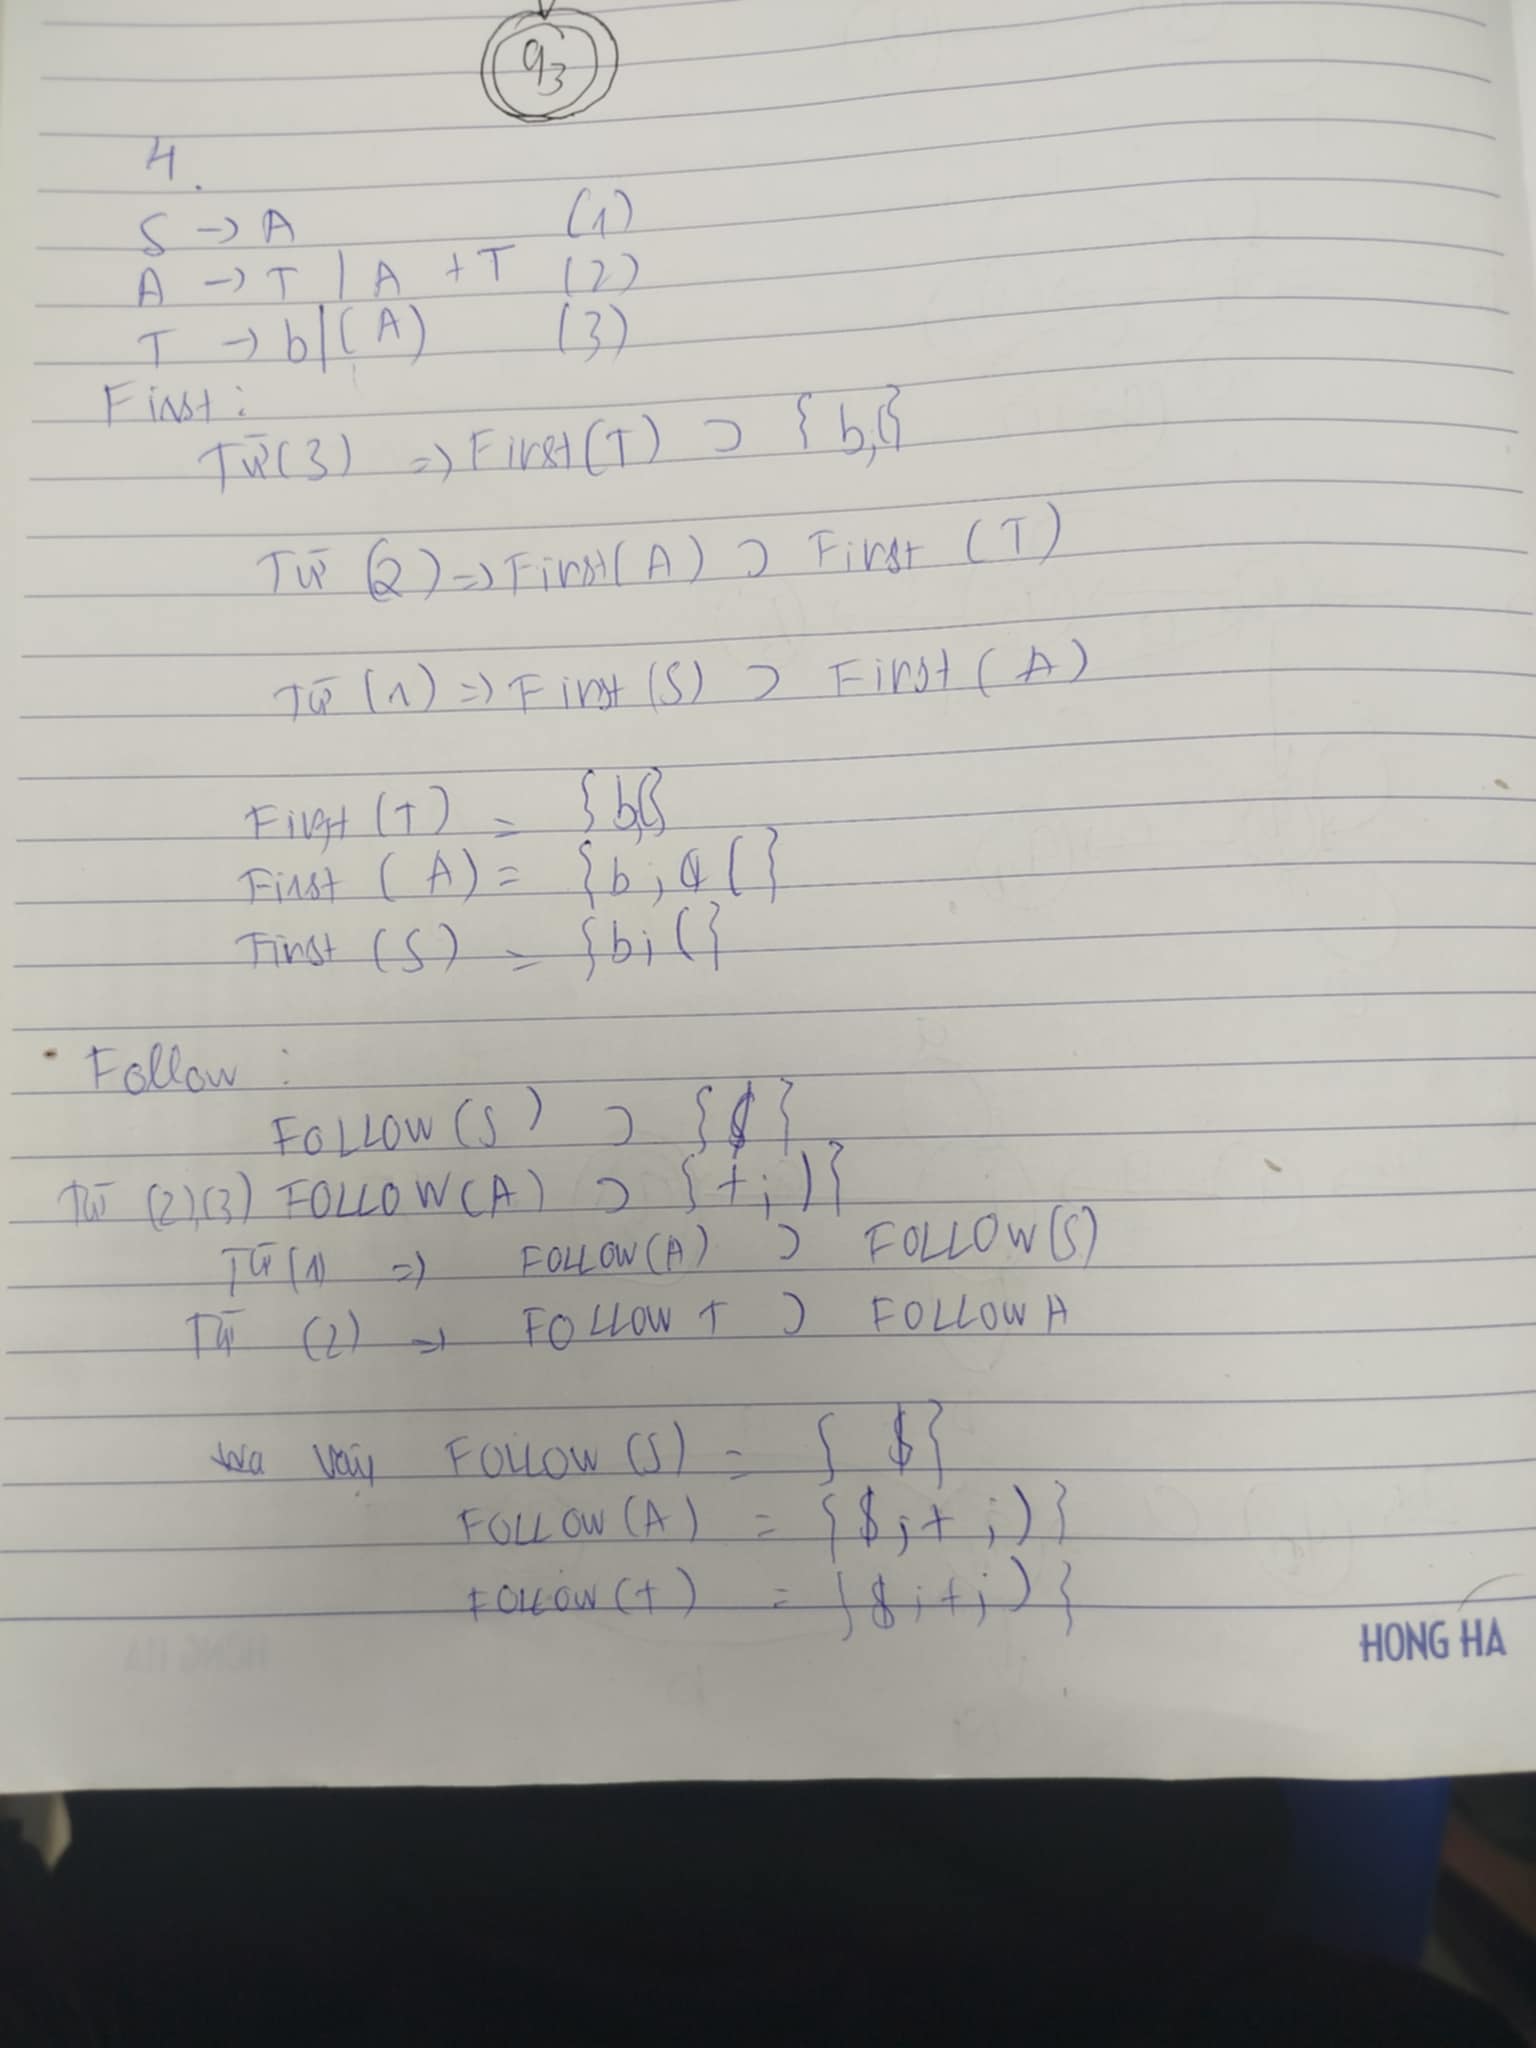 q3
4.
S → A (1)
A → T | A + T (2)
T → b | (A) (3)
First:
Từ (3) => First (T) ⊃ {b,(}
Từ (2) => First (A) ⊃ First (T)
Từ (1) => First (S) ⊃ First (A)
First (T) = {b,(}
First (A) = {b; (}
First (S) = {b; (}
Follow :
FOLLOW (S) ⊃ {$}
Từ (2),(3) FOLLOW (A) ⊃ {+; )}
Từ (1) => FOLLOW (A) ⊃ FOLLOW (S)
Từ (2) => FOLLOW T ⊃ FOLLOW A
vậy FOLLOW (S) = {$}
FOLLOW (A) = {$; + ; )}
FOLLOW (T) = {$; +; )}
HONG HA